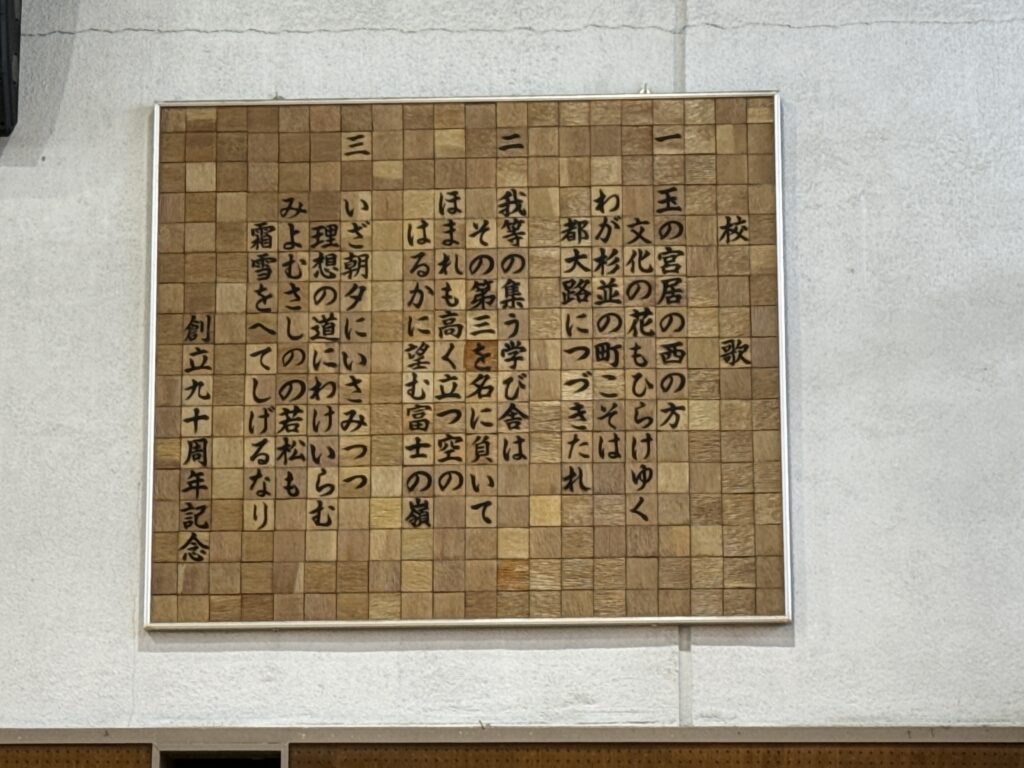 校 歌
一 玉の宮居の西の方
文化の花もひらけゆく
わが杉並の町こそは
都大路につづきたれ
二 我等の集う学び舎は
その第三を名に負いて
ほまれも高く立つ空の
はるかに望む富士の嶺
三 いざ朝夕にいさみつつ
理想の道にわけいらむ
みよむさしのの若松も
霜雪をへてしげるなり
創立九十周年記念